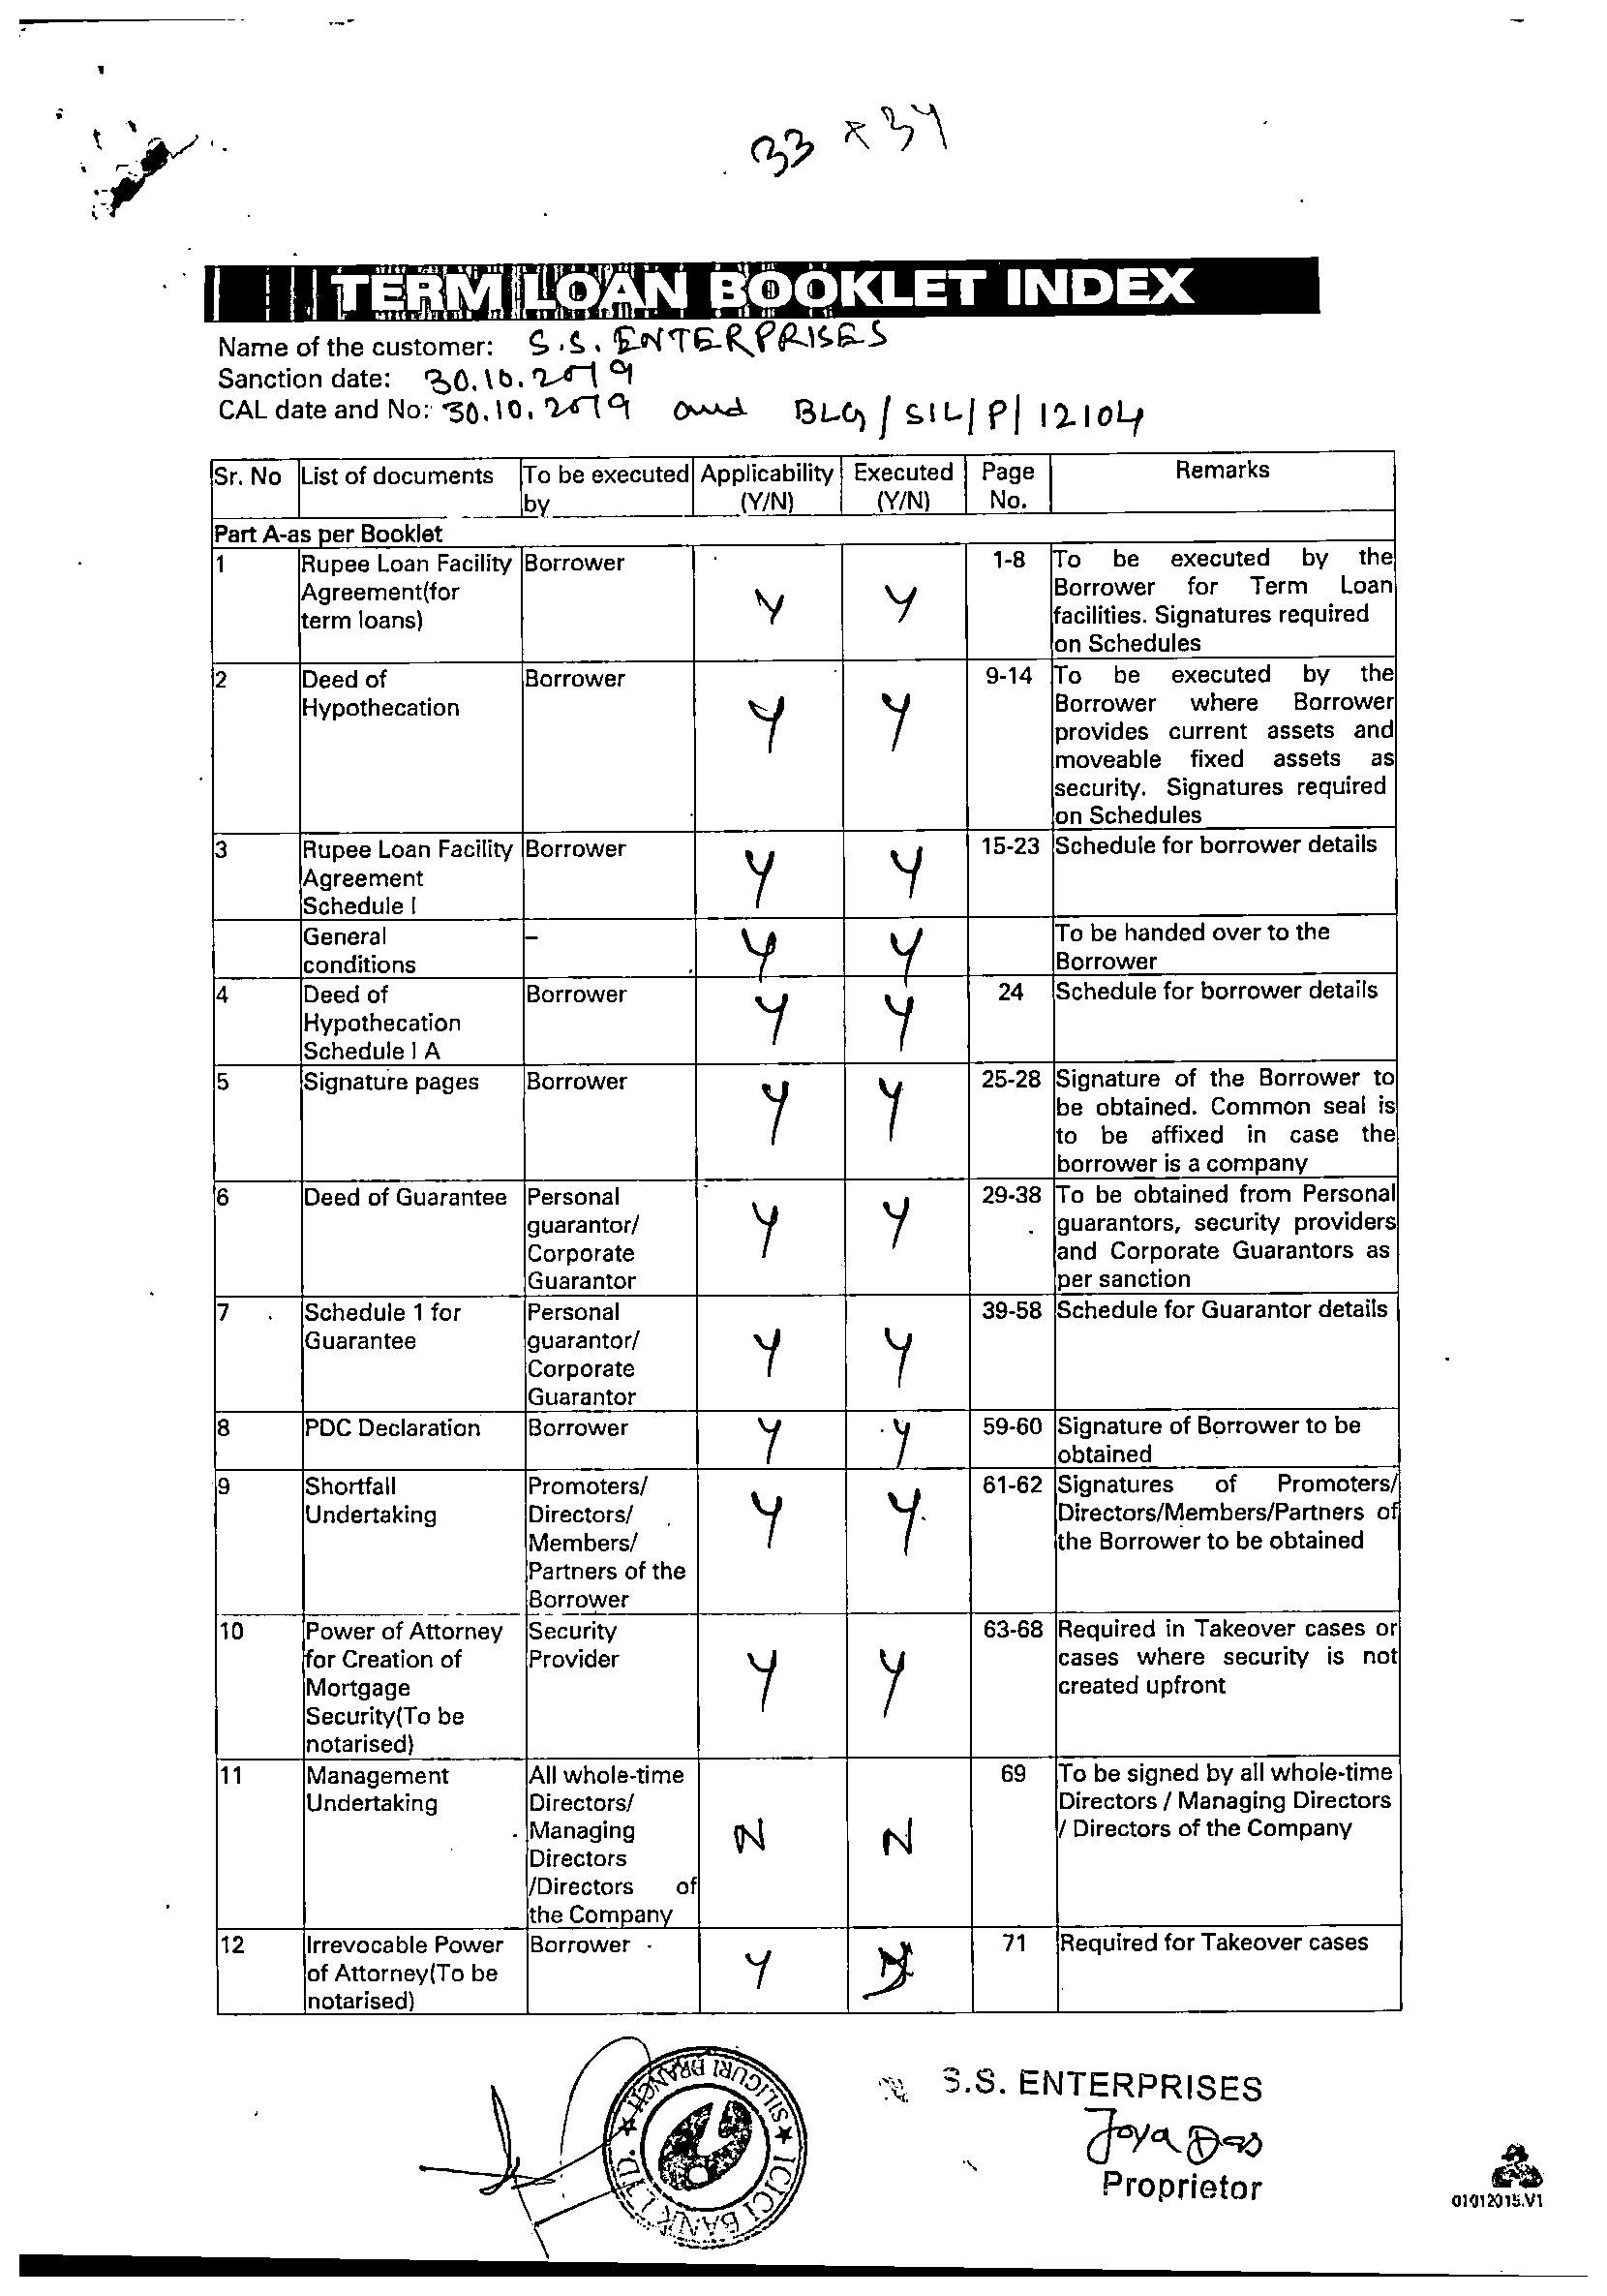 33 x 34
TERM LOAN BOOKLET INDEX
Name of the customer: S.S. ENTERPRISES
Sanction date: 30.10.2019
CAL date and No: 30.10.2019 and BLG/SIL/P/12104
Sr. No List of documents To be executed by Applicability (Y/N) Executed (Y/N) Page No. Remarks
Part A-as per Booklet
1 Rupee Loan Facility Agreement(for term loans) Borrower Y Y 1-8 To be executed by the Borrower for Term Loan facilities. Signatures required on Schedules
2 Deed of Hypothecation Borrower Y Y 9-14 To be executed by the Borrower where Borrower provides current assets and moveable fixed assets as security. Signatures required on Schedules
3 Rupee Loan Facility Agreement Schedule I Borrower Y Y 15-23 Schedule for borrower details
General conditions – Y Y To be handed over to the Borrower
4 Deed of Hypothecation Schedule I A Borrower Y Y 24 Schedule for borrower details
5 Signature pages Borrower Y Y 25-28 Signature of the Borrower to be obtained. Common seal is to be affixed in case the borrower is a company
6 Deed of Guarantee Personal guarantor/ Corporate Guarantor Y Y 29-38 To be obtained from Personal guarantors, security providers and Corporate Guarantors as per sanction
7 Schedule 1 for Guarantee Personal guarantor/ Corporate Guarantor Y Y 39-58 Schedule for Guarantor details
8 PDC Declaration Borrower Y Y 59-60 Signature of Borrower to be obtained
9 Shortfall Undertaking Promoters/ Directors/ Members/ Partners of the Borrower Y Y 61-62 Signatures of Promoters/ Directors/Members/Partners of the Borrower to be obtained
10 Power of Attorney for Creation of Mortgage Security(To be notarised) Security Provider Y Y 63-68 Required in Takeover cases or cases where security is not created upfront
11 Management Undertaking All whole-time Directors/ Managing Directors /Directors of the Company N N 69 To be signed by all whole-time Directors / Managing Directors / Directors of the Company
12 Irrevocable Power of Attorney(To be notarised) Borrower Y 71 Required for Takeover cases
ICICI BANK LTD. ★ SILIGURI BRANCH ★
S.S. ENTERPRISES
Joya Das
Proprietor
01012015.V1